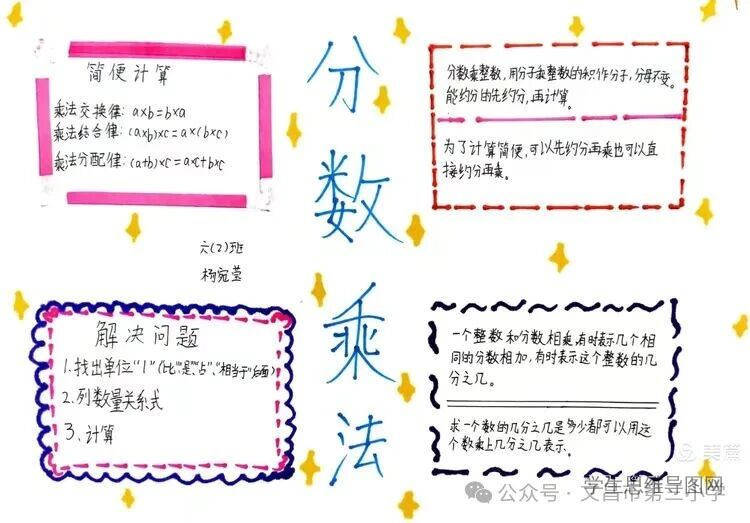 分数乘法
简便计算
乘法交换律: a×b=b×a
乘法结合律: (a×b)×c=a×(b×c)
乘法分配律: (a+b)×c=a×c+b×c
分数乘整数,用分子乘整数的积作分子,分母不变。
能约分的先约分,再计算。
为了计算简便,可以先约分再乘也可以直
接约分再乘。
六(2)班
杨宛莹
解决问题
1.找出单位“1”(“比”“是”“占”、“相当于”后面)
2.列数量关系式
3、计算
一个整数和分数相乘,有时表示几个相
同的分数相加,有时表示这个整数的几
分之几。
求一个数的几分之几是多少都可以用这
个数乘上几分之几表示。
美篇
学生思维导图网
公众号·文昌市第三小学